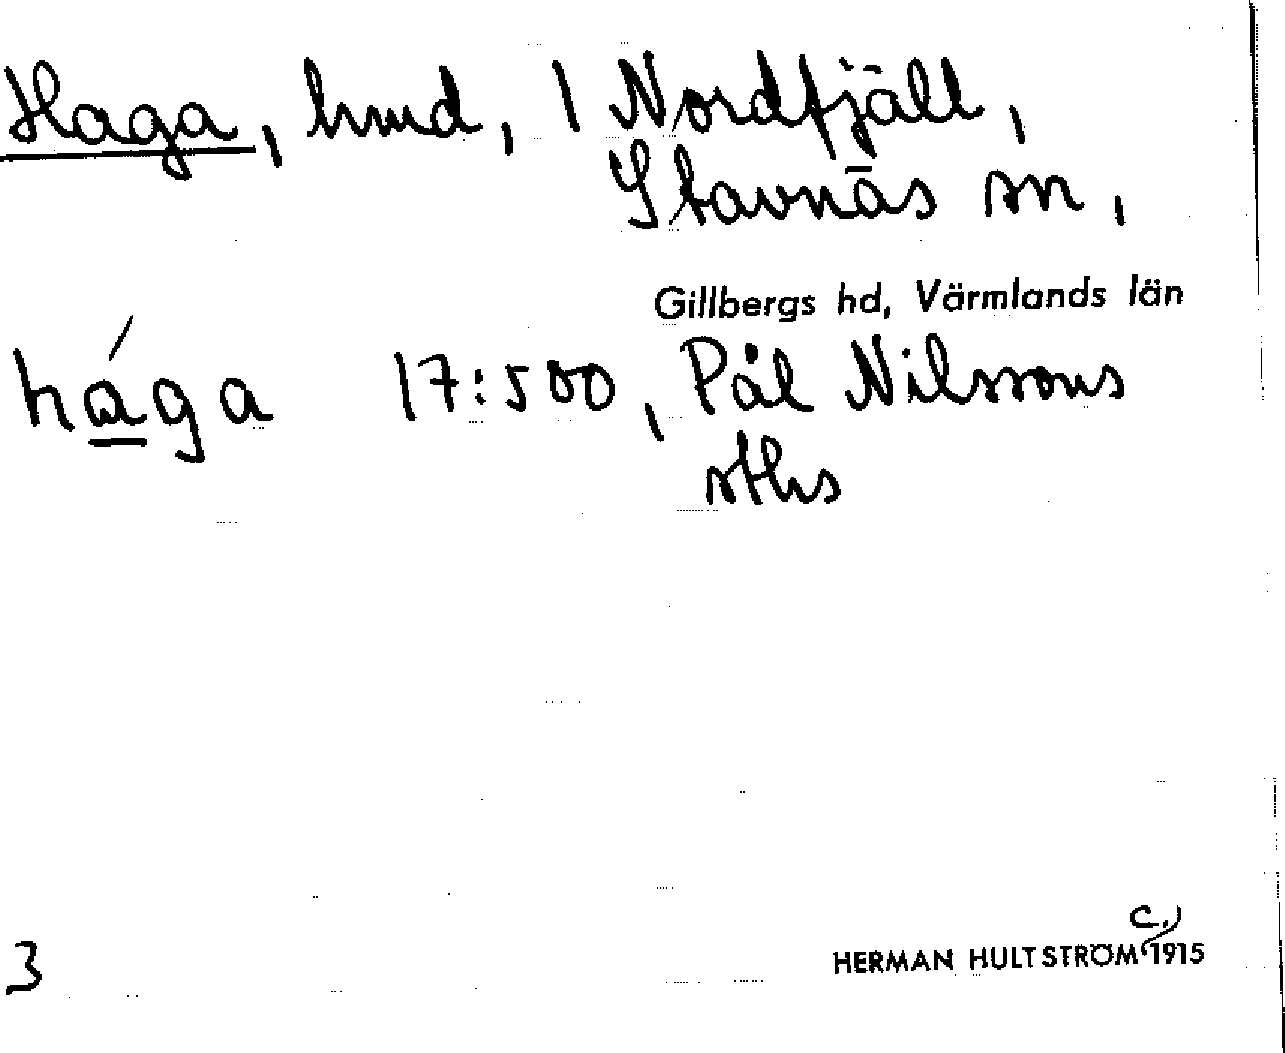 Haga, hmd, 1 Nordfjäll,
Stavnäs sn,
Gillbergs hd, Värmlands län
hága 17:500, Pål Nilssons
sths
c.)
3 HERMAN HULTSTRÖM 1915